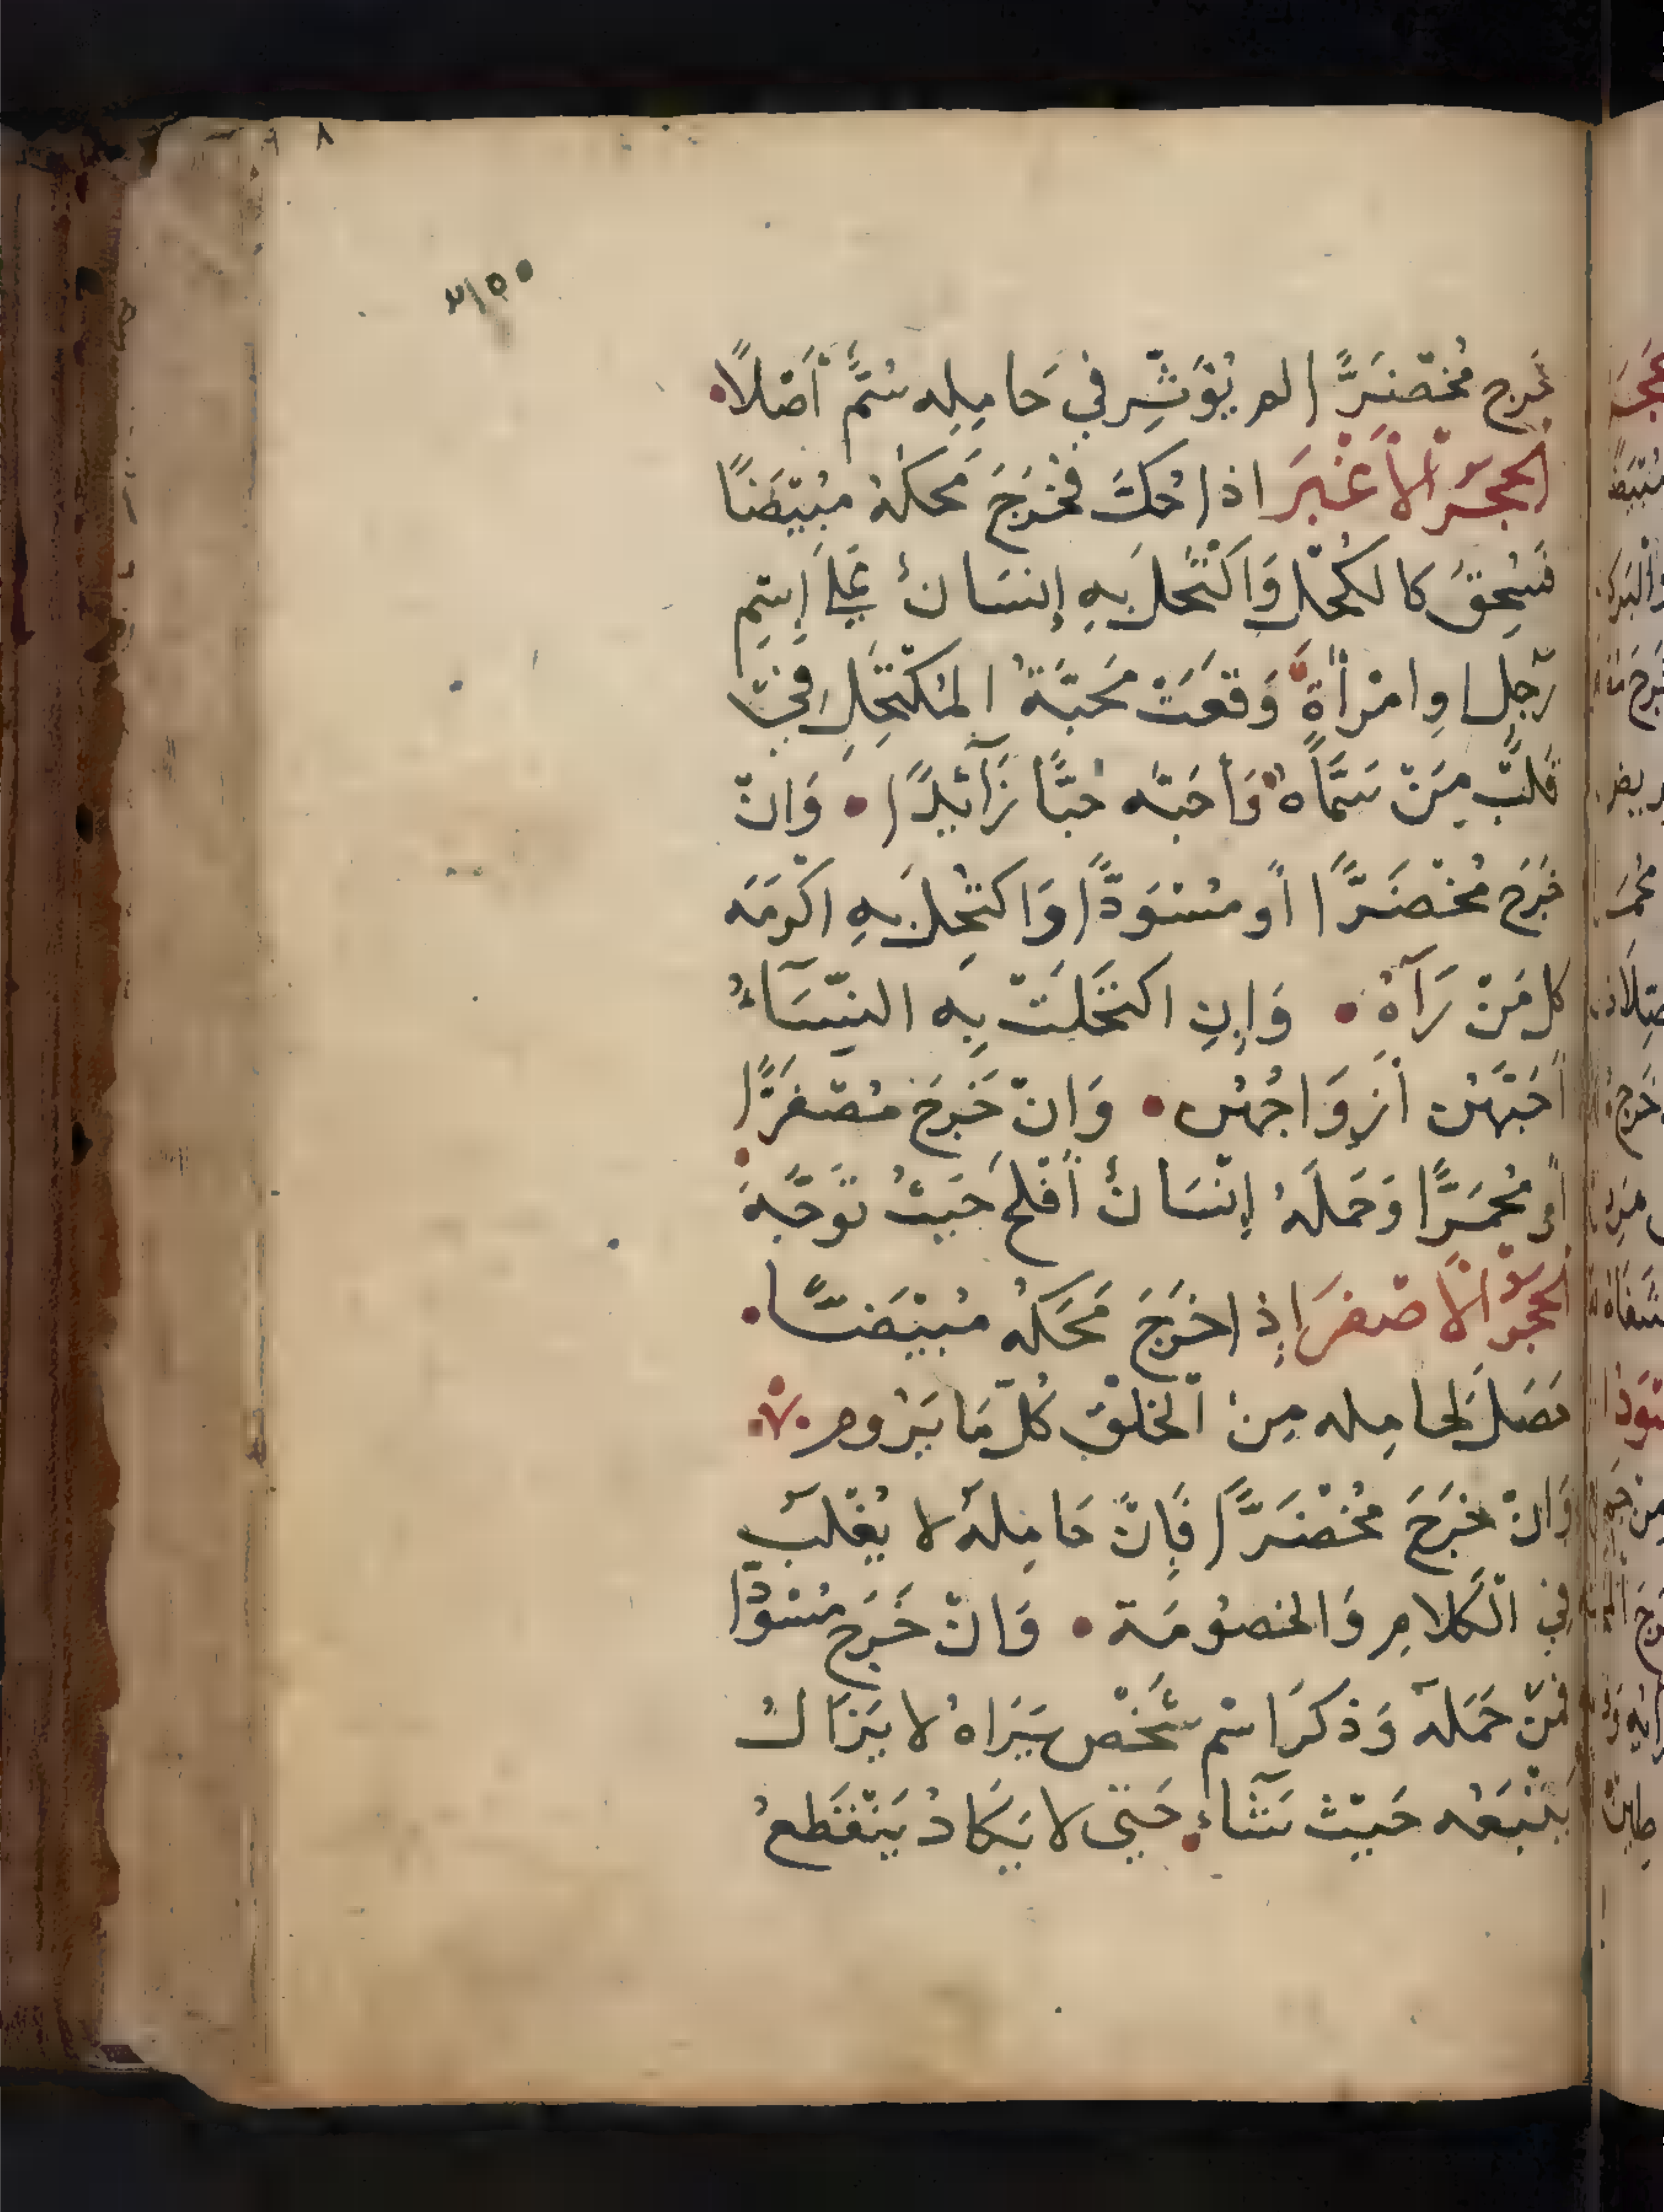 ٨
٣١٥٥
خرج مُخْضَرًّا لم يُؤَثِّر في حَامِلِه سُمٌّ أَصْلًا
الحجرُ الأَغْبَر اذا حُكَّ فَخَرَجَ مَحَكُهُ مُبْيَضًا
فَسُحِقَ كالكُحْل وَاكْتُحِلَ بِهِ إِنسَانٌ عَلى إِسْمِ
رَجل اوِ امْرأَةٍ وَقَعَتْ مَحَبَّةُ المُكْتَحِلِ في
قَلبِ مِنْ سَمَّاهُ وَأحَبَّه حُبًّا زَآئِدًا وَانْ
خَرَج مُخْضَرًّا أو مُسْوَدًّا وَاكتُحِلَ بِهِ اكْرَمَه
كل مَنْ رَآهُ وَإِنِ اكتَحَلَتْ بِهِ النِّسَآءُ
أَحَبَّهُن أَزوَاجُهُن وَانْ خَرَجَ مُصْفَرًّا
أو مُحْمَرًّا وَحَمَلَهُ إِنْسَانٌ أَفْلحَ حَيثُ تَوَجَّهَ
الحجرُ الأَصْفَر إِذا خَرَجَ مَحَكُهُ مُبْيَضًّا
حَصَلَ لحامِله مِنَ الْخَلْقِ كُلّ مَا يَرُوم
وَانْ خَرَجَ مُخْضَرًّا فَإِنَّ حَامِلَهُ لا يُغْلَب
فِي الْكَلامِ وَالخصُومَة وَانْ خَرَج مُسْوَدًّا
فَمَنْ حَمَلَهُ وَذَكَرَ اسْم شَخْص يَرَاهُ لا يَزَالُ
يَتْبَعُه حَيْثُ شَآءَ حَتى لا يَكَادُ يَنْقَطِعُ